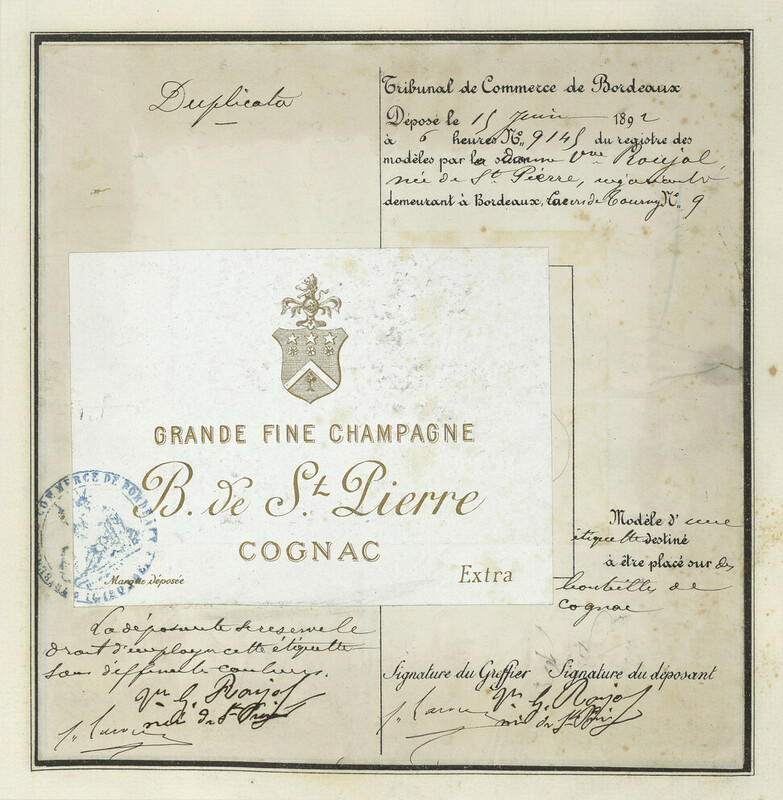 Duplicata
Tribunal de Commerce de Bordeaux
Déposé le 15 Juin 1892
à 6 heures N° 9145 du registre des
modèles par la dame Vve Roujol,
née de St Pierre, négociante
demeurant à Bordeaux, cours de Tourny N° 9
GRANDE FINE CHAMPAGNE
B. de St. Pierre
COGNAC
Marque déposée
Extra
COMMERCE DE BORDEAUX
Modèle d'une
étiquette destiné
à être placé sur des
bouteilles de
cognac
La déposante se réserve le
droit d'employer cette étiquette
sous différentes couleurs.
Vve G. Roujol
née de St Pierre
Signature du Greffier
Signature du déposant
Vve G. Roujol
née de St Pierre